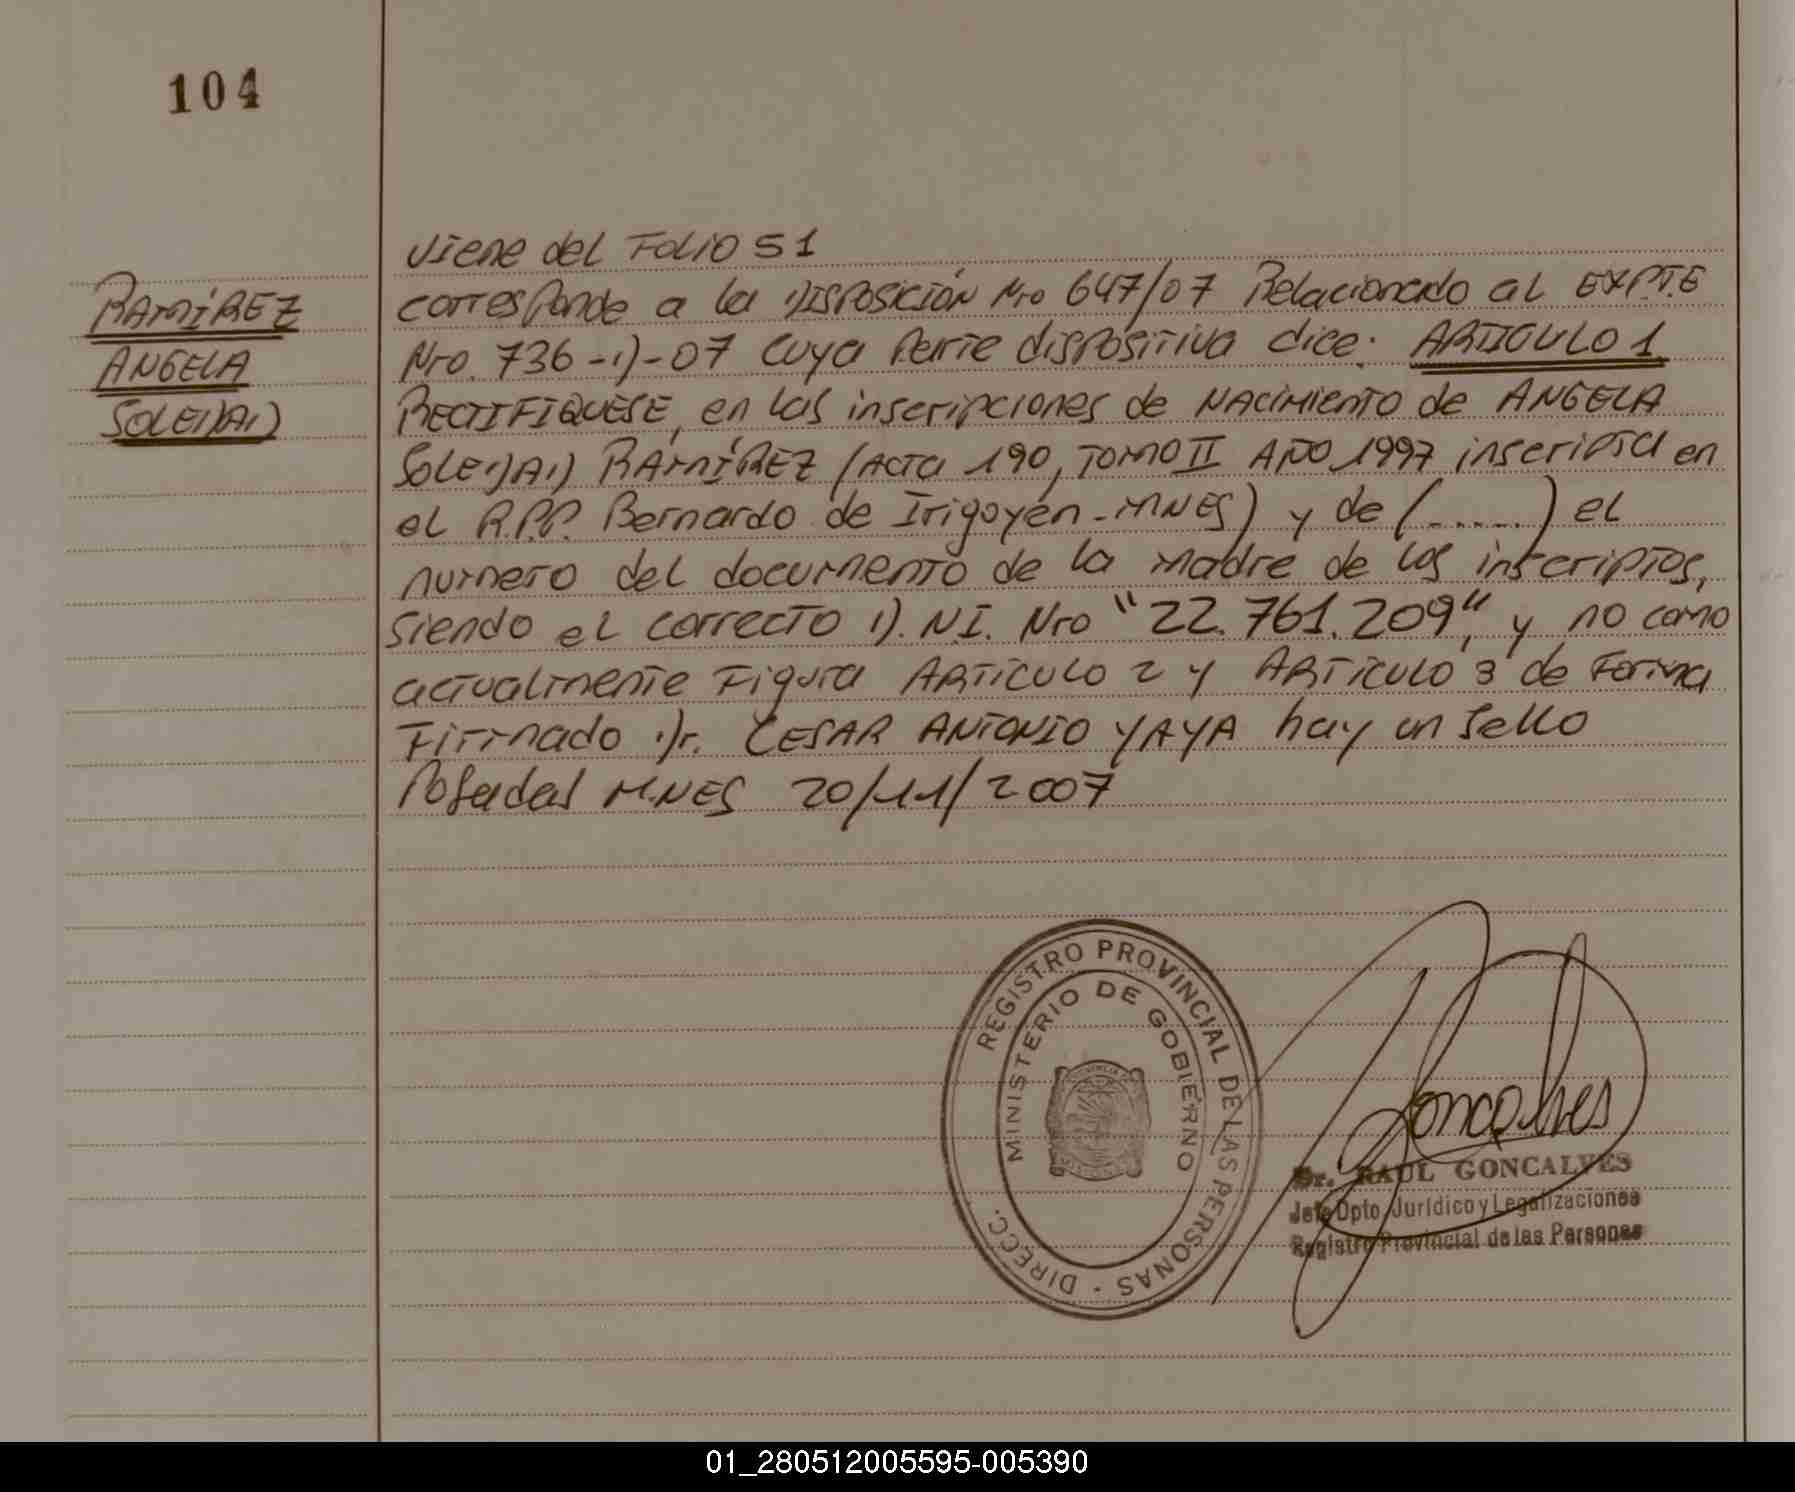 104
RAMÍREZ
ANGELA
SOLEDAD
Viene del Folio 51
corresponde a la DISPOSICIÓN Nro 647/07 Relacionado al EXPTE
Nro. 736-D-07 Cuya Parte dispositiva dice: ARTICULO 1
RECTIFIQUESE, en las inscripciones de NACIMIENTO de ANGELA
SOLEDAD RAMÍREZ (ACTA 190, TOMO II AÑO 1997 inscripta en
el R.P.P. Bernardo de Irigoyen-MNES) y de (......) el
numero del documento de la madre de los inscriptos,
siendo el correcto D.N.I. Nro "22.761.209", y no como
actualmente Figura ARTÍCULO 2 y ARTÍCULO 3 de Forma
Firmado Dr. CESAR ANTONIO YAYA hay un Sello
Posadas M.NES 20/11/2007
REGISTRO PROVINCIAL DE LAS PERSONAS - DIRECC.
MINISTERIO DE GOBIERNO
Goncalves
Dr. RAUL GONCALVES
Jefe Dpto. Jurídico y Legalizaciones
Registro Provincial de las Personas
01_280512005595-005390